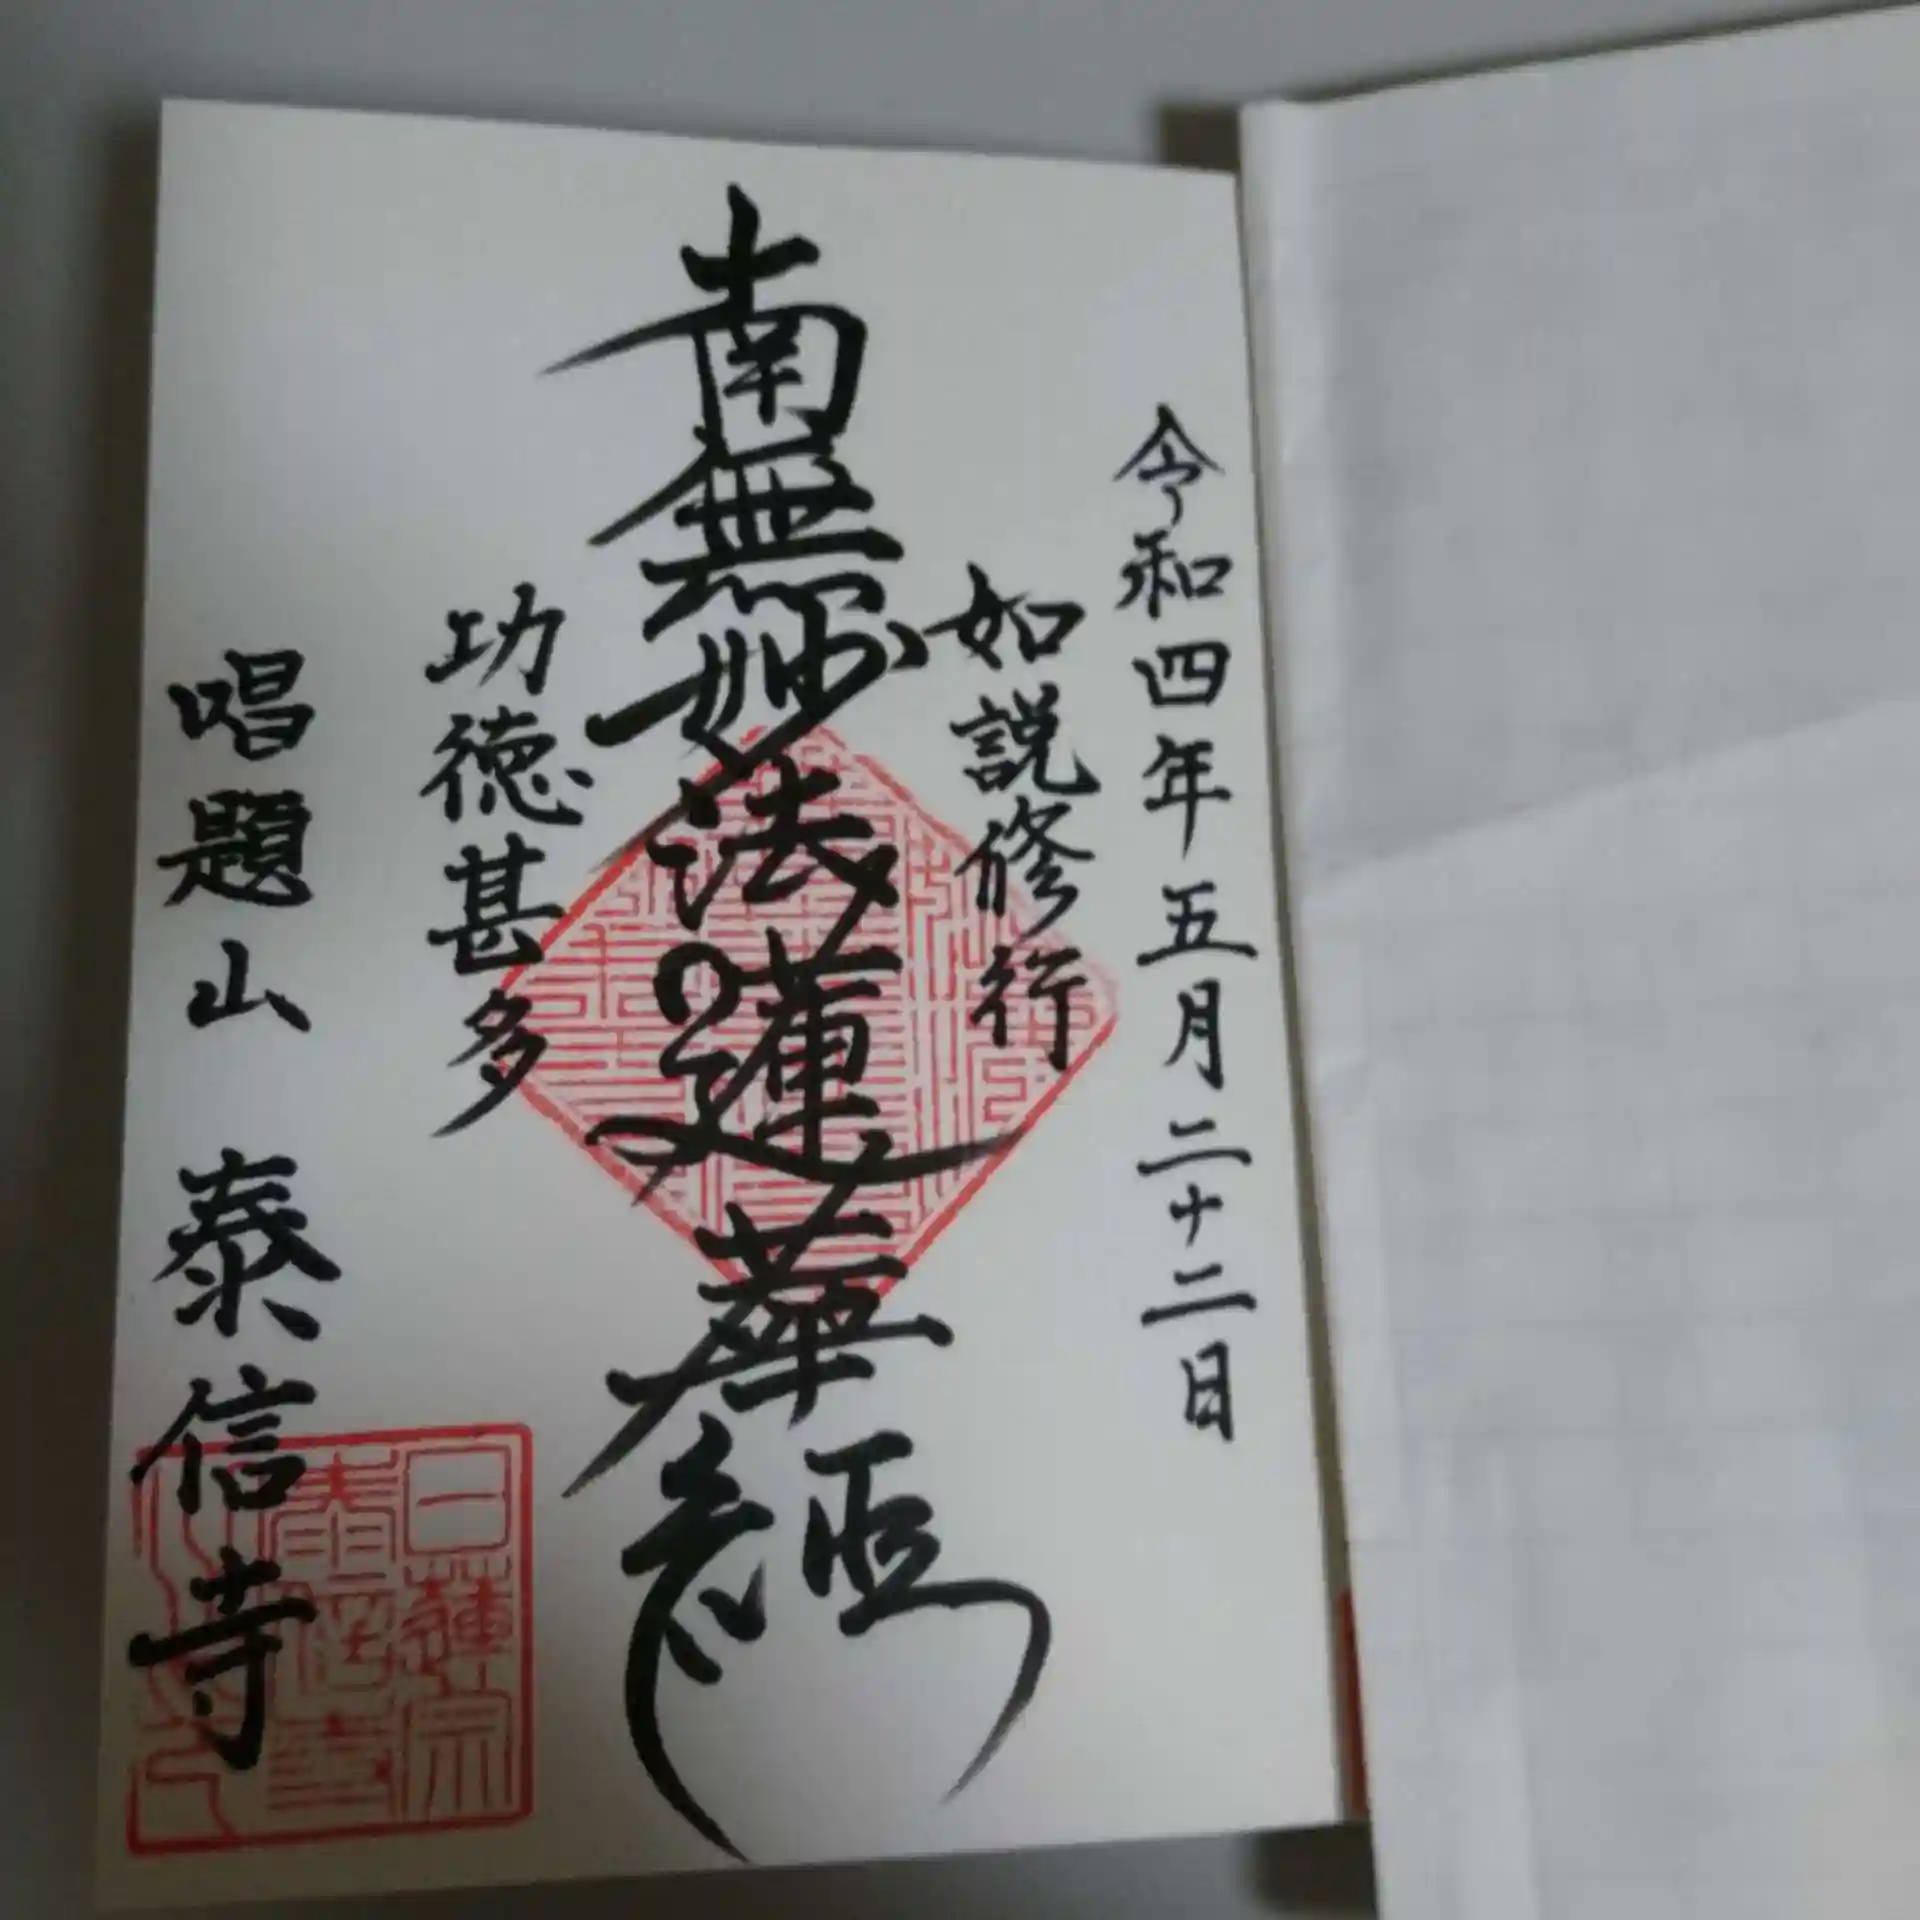 令和四年五月二十二日
如説修行
南無妙法蓮華經
功徳甚多
唱題山 泰信寺
日蓮宗
泰信寺